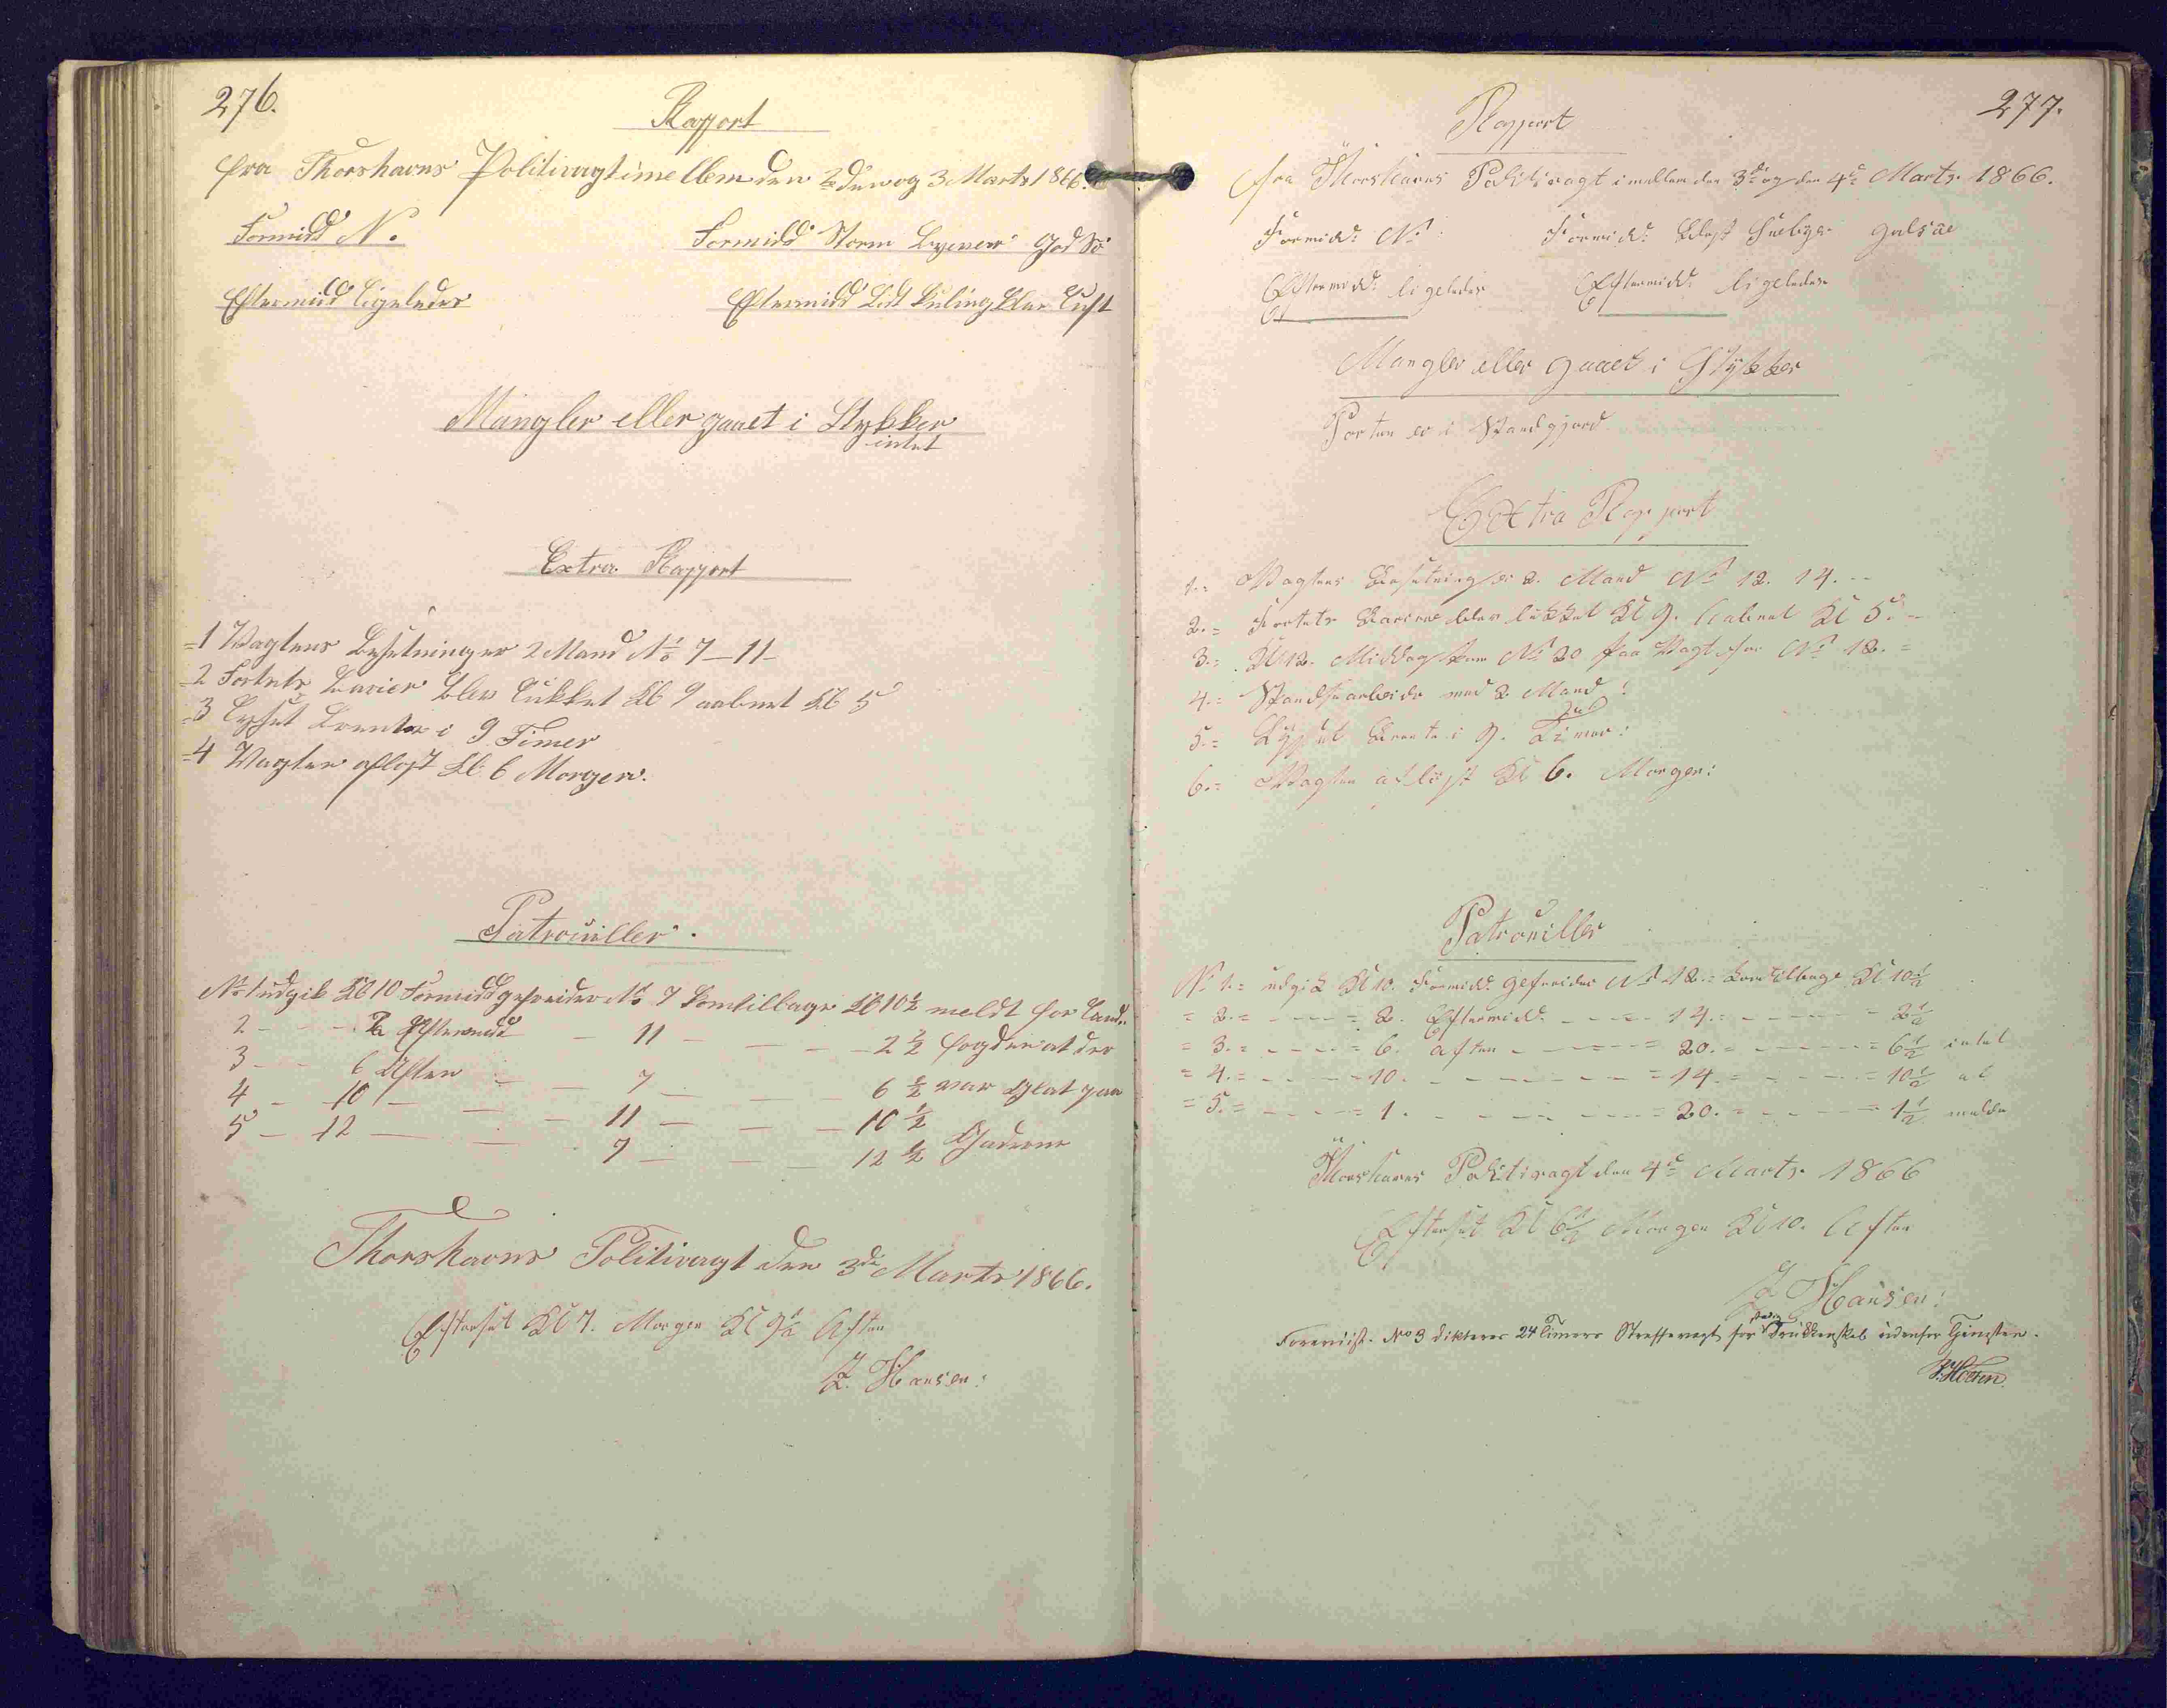 276.
Rapport
fra Thorshavns Politivagt imellem den 2den og 3 Marts 1866.
Formidd N.
Formidd Storm Byever god Sö
Eftermidd ligeledes
Eftermidd Lidt Kuling klar Luft
Mangler eller gaaet i Stykker
intet
Extra Rapport
1 Vagtens Besetning er 2 Mand No 7-11-
2 Fortets Barier blev lukket Kl 9 aabnet Kl 5
3 Lyset brente i 9 Timer
4 Vagten aflöst Kl. 6 Morgen.
Patrouiller.
No 1 udgik Kl 10 Formidd gefreider No 7 kom tilbage Kl 10½ meldt for Land-
2 - - - 2 Eftermidd - 11 - - - 2½ fogden at der
3 - - 6 Aften - - 7 - - - 6½ var Glat paa
4 - 10 - - - 11 - - - 10½
5 - 12 - - - 7 - - 12½ Gaderne
Thorshavns Politivagt den 3die Marts 1866.
Efterset Kl 7. Morgen Kl 9½ Aften
J. Hansen:
277.
Rapport
fra Thorshavns Politivagt imellem den 3die og den 4de Marts. 1866.
Formidd: N.
Formidd: Blæst Snebyger
Eftermidd: ligeledes
Eftermidd: ligeledes
Mangler eller gaaet i Stykker
Porten er i Stand gjord
Extra Rapport
1.= Vagtens Besetning er 2. Mand No 12. 14. --
2.= Fortets Bariere blev lukket Kl 9. aabnet Kl 5. -
3.= Kl 12. Middag kom No 20 paa Vagt for No 12. =
4.= Strandsarbeide med 2 Mand
5.= Lyset brente i 9. Timer:
6.= Vagten aflöst Kl 6. Morgen:
Patrouiller
No 1.= udgik Kl 10. Formidd: gefreider No 12.= kom tilbage Kl 10½
= 2.= - - - = 2. Eftermidd. - - - - 14. = - - - - 2½
= 3.= - - - = 6. aften - - - - = 20. = - - - - = 6½ intet
= 4.= - - - - 10. - - - - - = 14. = - - - = 10½ at
= 5.= - - - = 1. - - - - - = 20. = - - - = 1½ melde
Thorshavns Politivagt den 4de Marts. 1866
Efterset Kl 6½ Morgen Kl 10. Aften
J Hansen:
No 3 dikteres 24 Timers Straffevagt for Drukkenskab udenfor Tjenesten.